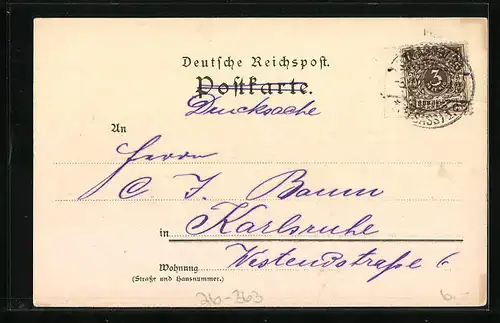 Deutsche Reichspost.
Postkarte.
Drucksache
3
An
Herrn
C J. Baum
in Karlsruhe
Westendstraße 6
Wohnung
(Straße und Hausnummer.)
26-363
6.-